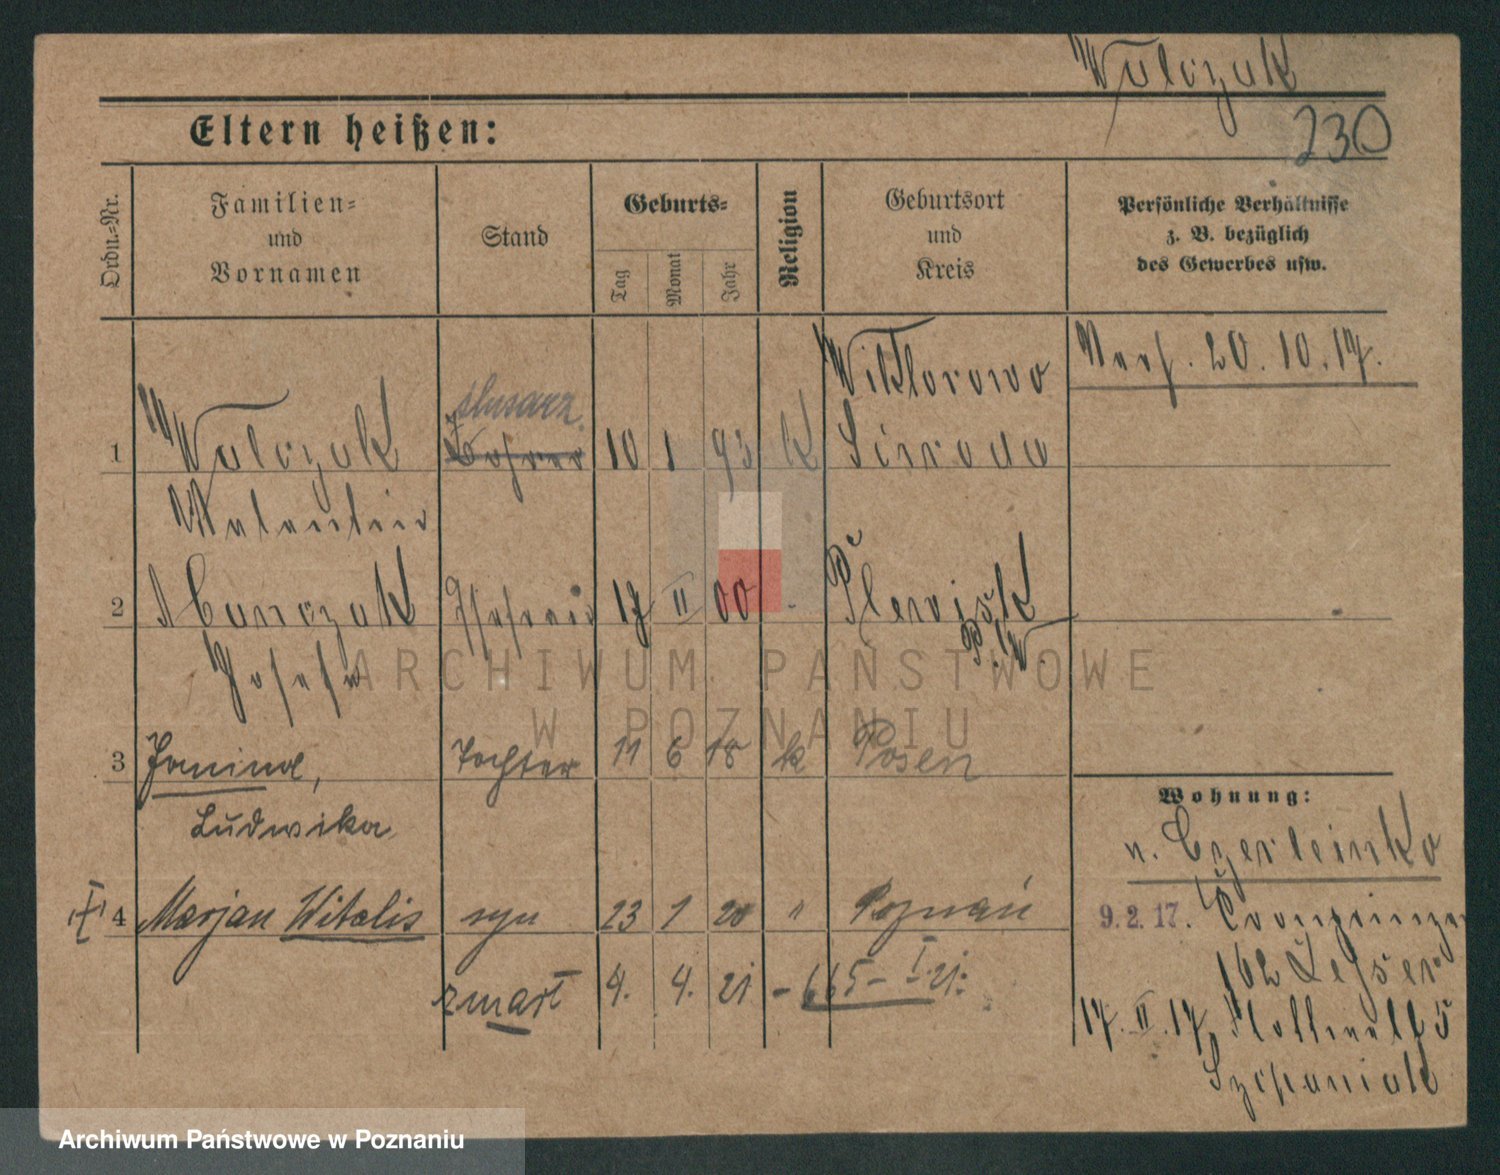 Walczak
Eltern heißen:
230
Ordn.-Nr.
Familien-
und
Vornamen
Stand
Geburts-
Tag
Monat
Jahr
Religion
Geburtsort
und
Kreis
Persönliche Verhältnisse
z. B. bezüglich
des Gewerbes usw.
Verh. 20. 10. 17.
Wiktorowo
ślusarz
1 Walczak 10 1 93 K Schroda
Valentin
2 Abarczak 17 II 00 Plewisk
P. W.
Josefa
ARCHIWUM PAŃSTWOWE
W POZNANIU
3 Janina, Tochter 11 6 18 k Posen
Ludwika
Wohnung:
n. Czerleinko
4 Marjan Witalis syn 23 1 20 " Poznań
9. 2. 17. Kronprinzen
102
zmarł 4. 4. 21 - 665 - I. 21.
17. II. 17. 5
Szczepaniak
Archiwum Państwowe w Poznaniu